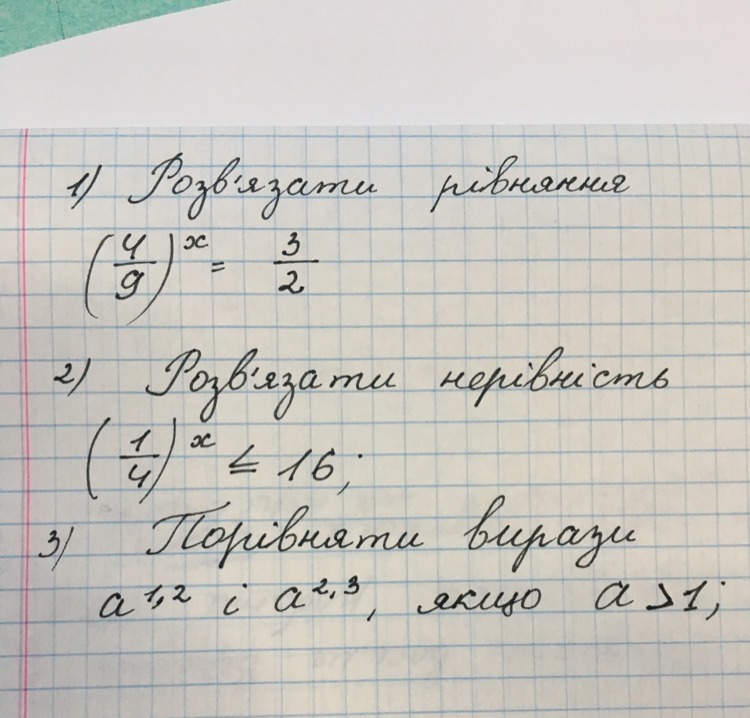 1) Розв'язати рівняння
(4/9)^x = 3/2
2) Розв'язати нерівність
(1/4)^x ≤ 16;
3) Порівняти вирази
a^1,2 і a^2,3, якщо a > 1;